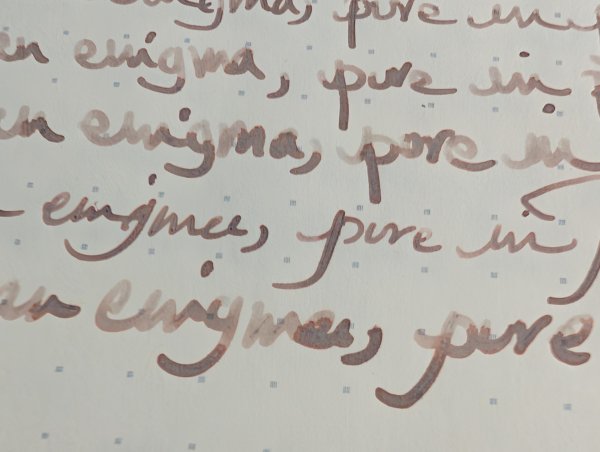 enigma, pure in
en enigma, pure in
en enigma, pore in
enigma, pure in
an enigma, pure